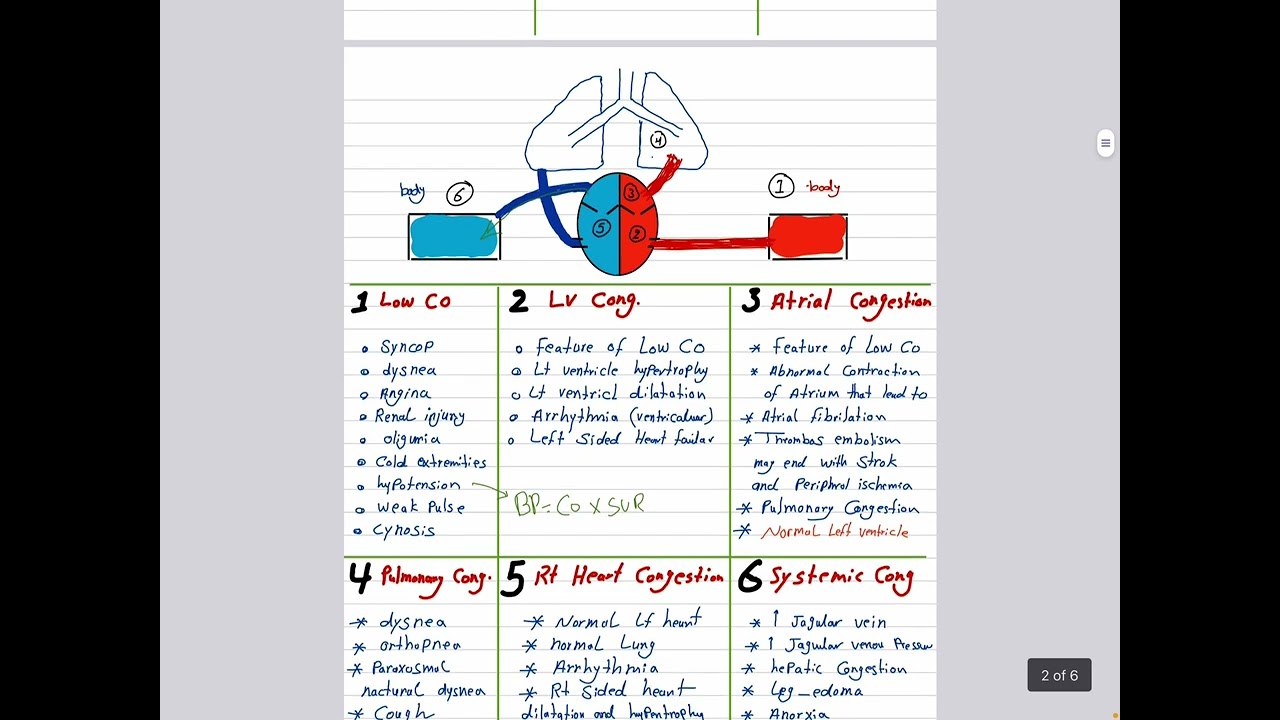 4
body 6
3
1 body
5
2
1 Low Co
Syncop
dysnea
Angina
Renal injury
oligunia
Cold extremities
hypotension
weak Pulse
Cynosis
2 LV Cong.
Feature of Low Co
Lt ventricle hypertrophy
Lt ventricl dilatation
Arrhythmia (ventricaluar)
Left Sided Heart failar
BP= Co x SVR
3 Atrial Congestion
* Feature of Low Co
* Abnormal Contraction
of Atrium that lead to
* Atrial fibrilation
* Thrombas embolism
may end with Strok
and Periphral ischemia
* Pulmonary Congestion
* Normal Left ventricle
4 Pulmonary Cong.
* dysnea
* orthopnea
* Paroxusmal
nactural dysnea
* Cough
5 Rt Heart Congestion
* Normal Lf heart
* normal Lung
* Arrhythmia
* Rt Sided heart
dilatation and hypentrophy
6 Systemic Cong
* ↑ Jagular vein
* ↑ Jagular venou Pressur
* hepatic Congestion
* Leg_edoma
* Anorxia
2 of 6